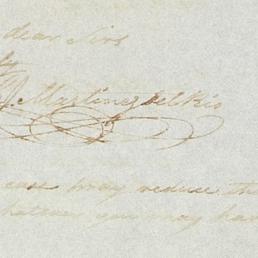 dear Sirs
J. Martinez del Rio
case may reduce the
whatever you may have